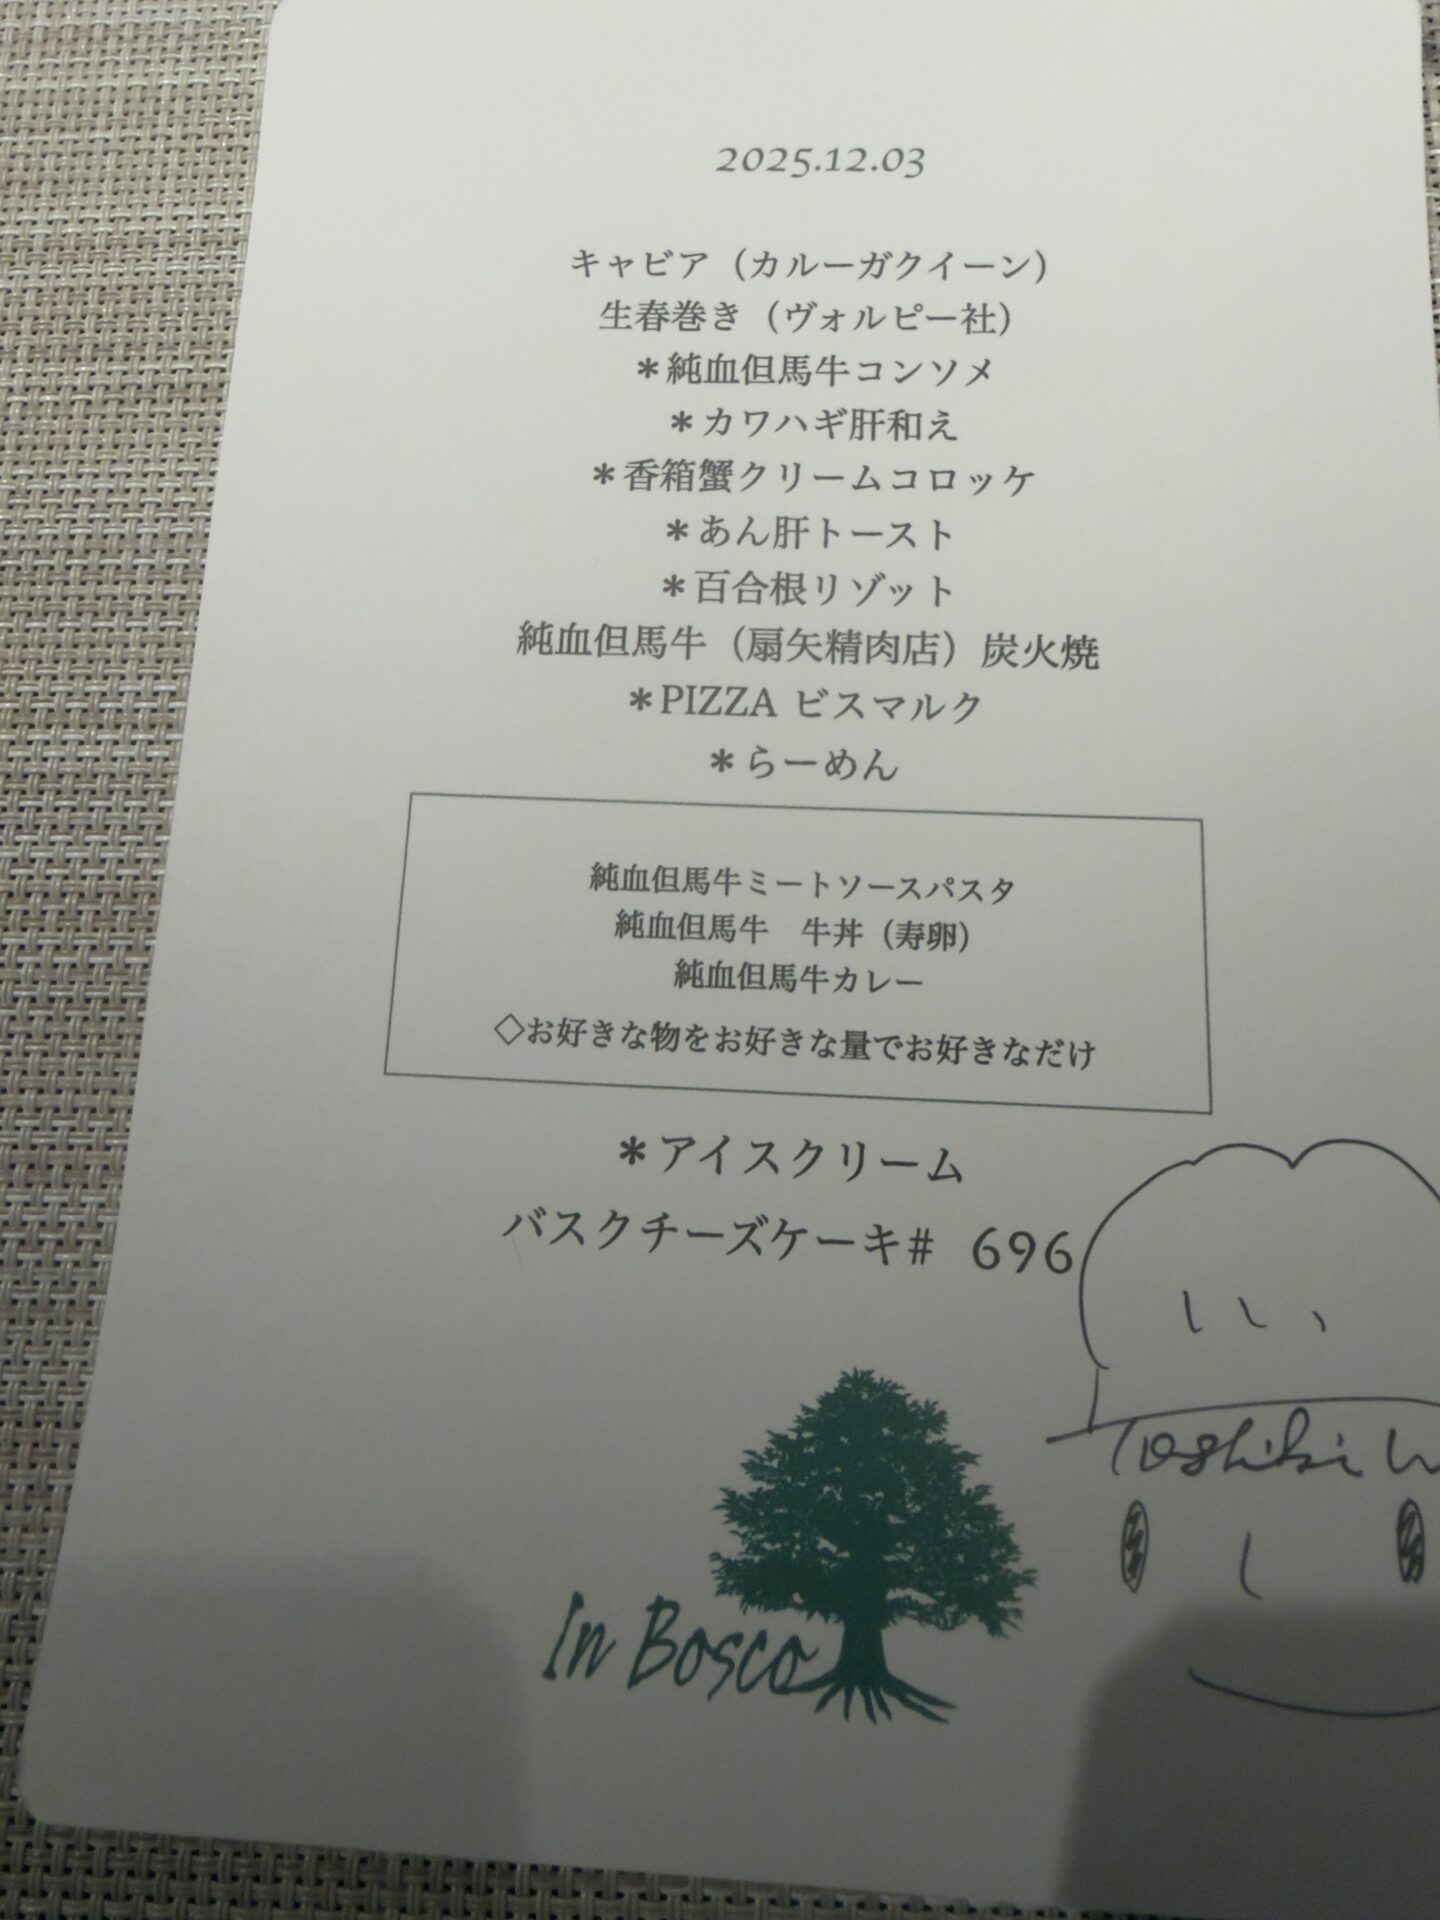 2025.12.03
キャビア（カルーガクイーン）
生春巻き（ヴォルピー社）
＊純血但馬牛コンソメ
＊カワハギ肝和え
＊香箱蟹クリームコロッケ
＊あん肝トースト
＊百合根リゾット
純血但馬牛（扇矢精肉店）炭火焼
＊PIZZA ビスマルク
＊らーめん
純血但馬牛ミートソースパスタ
純血但馬牛　牛丼（寿卵）
純血但馬牛カレー
◇お好きな物をお好きな量でお好きなだけ
＊アイスクリーム
バスクチーズケーキ# 696
Toshiki
In Bosco